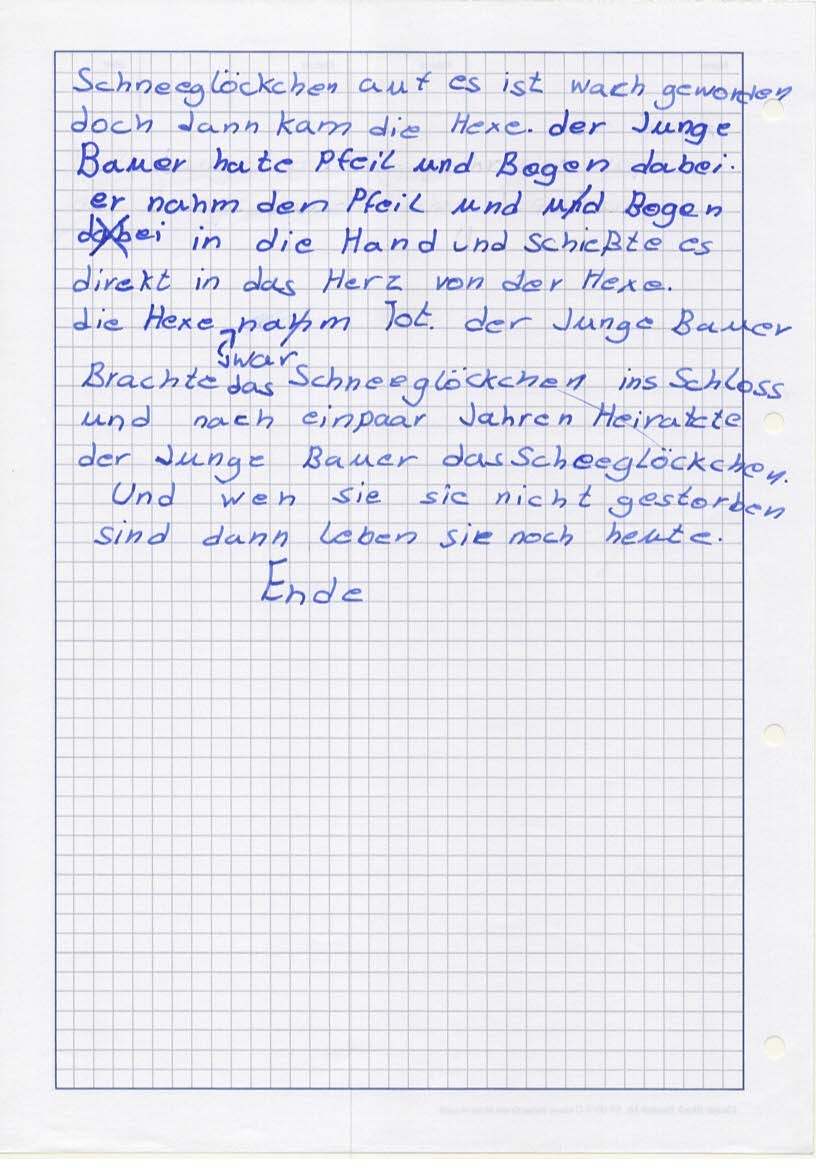 Schneeglöckchen auf es ist wach geworden
doch dann kam die Hexe. der Junge
Bauer hate Pfeil und Bogen dabei.
er nahm den Pfeil und und Bogen
dabei in die Hand und schießte es
direkt in das Herz von der Hexe.
die Hexe nahm Tot. der Junge Bauer
war
Brachte das Schneeglöckchen ins Schloss
und nach einpaar Jahren Heiratete
der Junge Bauer das Scheeglöckchen.
Und wen sie sie nicht gestorben
sind dann leben sie noch heute.
Ende